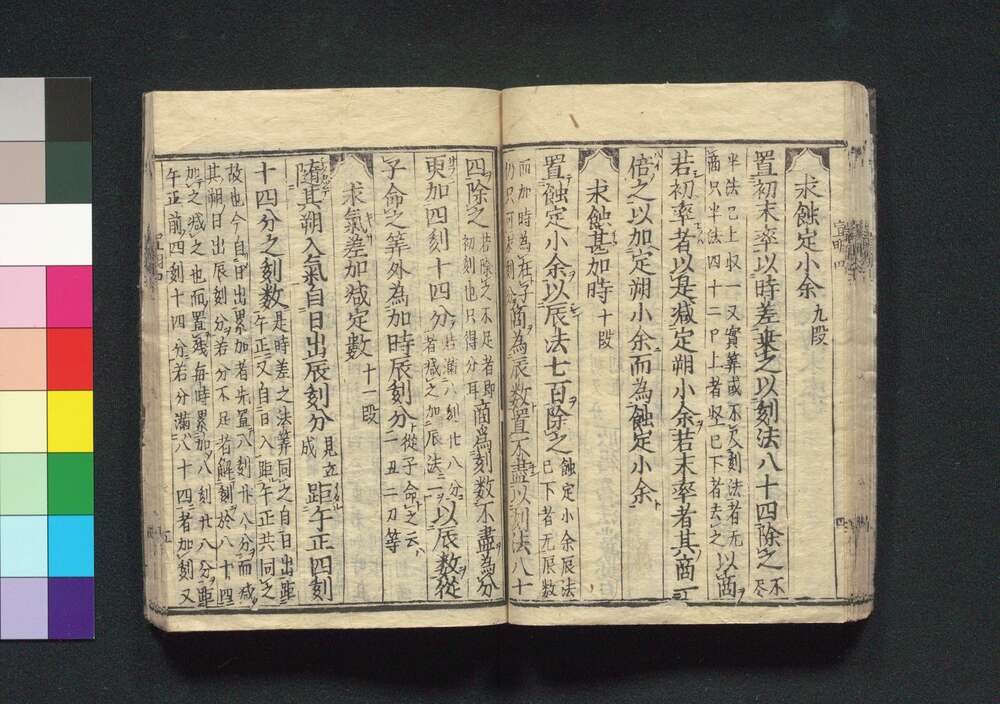 求蝕定小余九段
置初末率以時差乗之以刻法八十四除之不尽
半法已上収一又実算或不及刻法者无
商只半法四十二已上者収已下者去之以商
若初率者以是減定朔小余若末率者其商
倍之以加定朔小余而為蝕定小余
求蝕甚加時十段
置蝕定小余以辰法七百除之蝕定小余辰法
已下者无辰数
商為辰数置不尽以刻法八十
四除之若除之不足者即
初刻也只得分耳商為刻数不尽為分
更加四刻十四分若満八刻廿八分
者減之加辰法一以辰数従
子命之算外為加時辰刻分従子命之云
一丑二刀等
求氣差加減定數十一段
随其朔入氣自日出辰刻分見立成距午正四刻
十四分之刻数是時差之法算同之自日出距
午正又自日入距午正共同之
故也今自日出累加者先置八刻廿八分而減
其朔日出辰刻分若分不足者解刻於八十四
加之減之也而置残毎時累加八刻廿八分距
午正前四刻十四分若分満八十四者加刻又